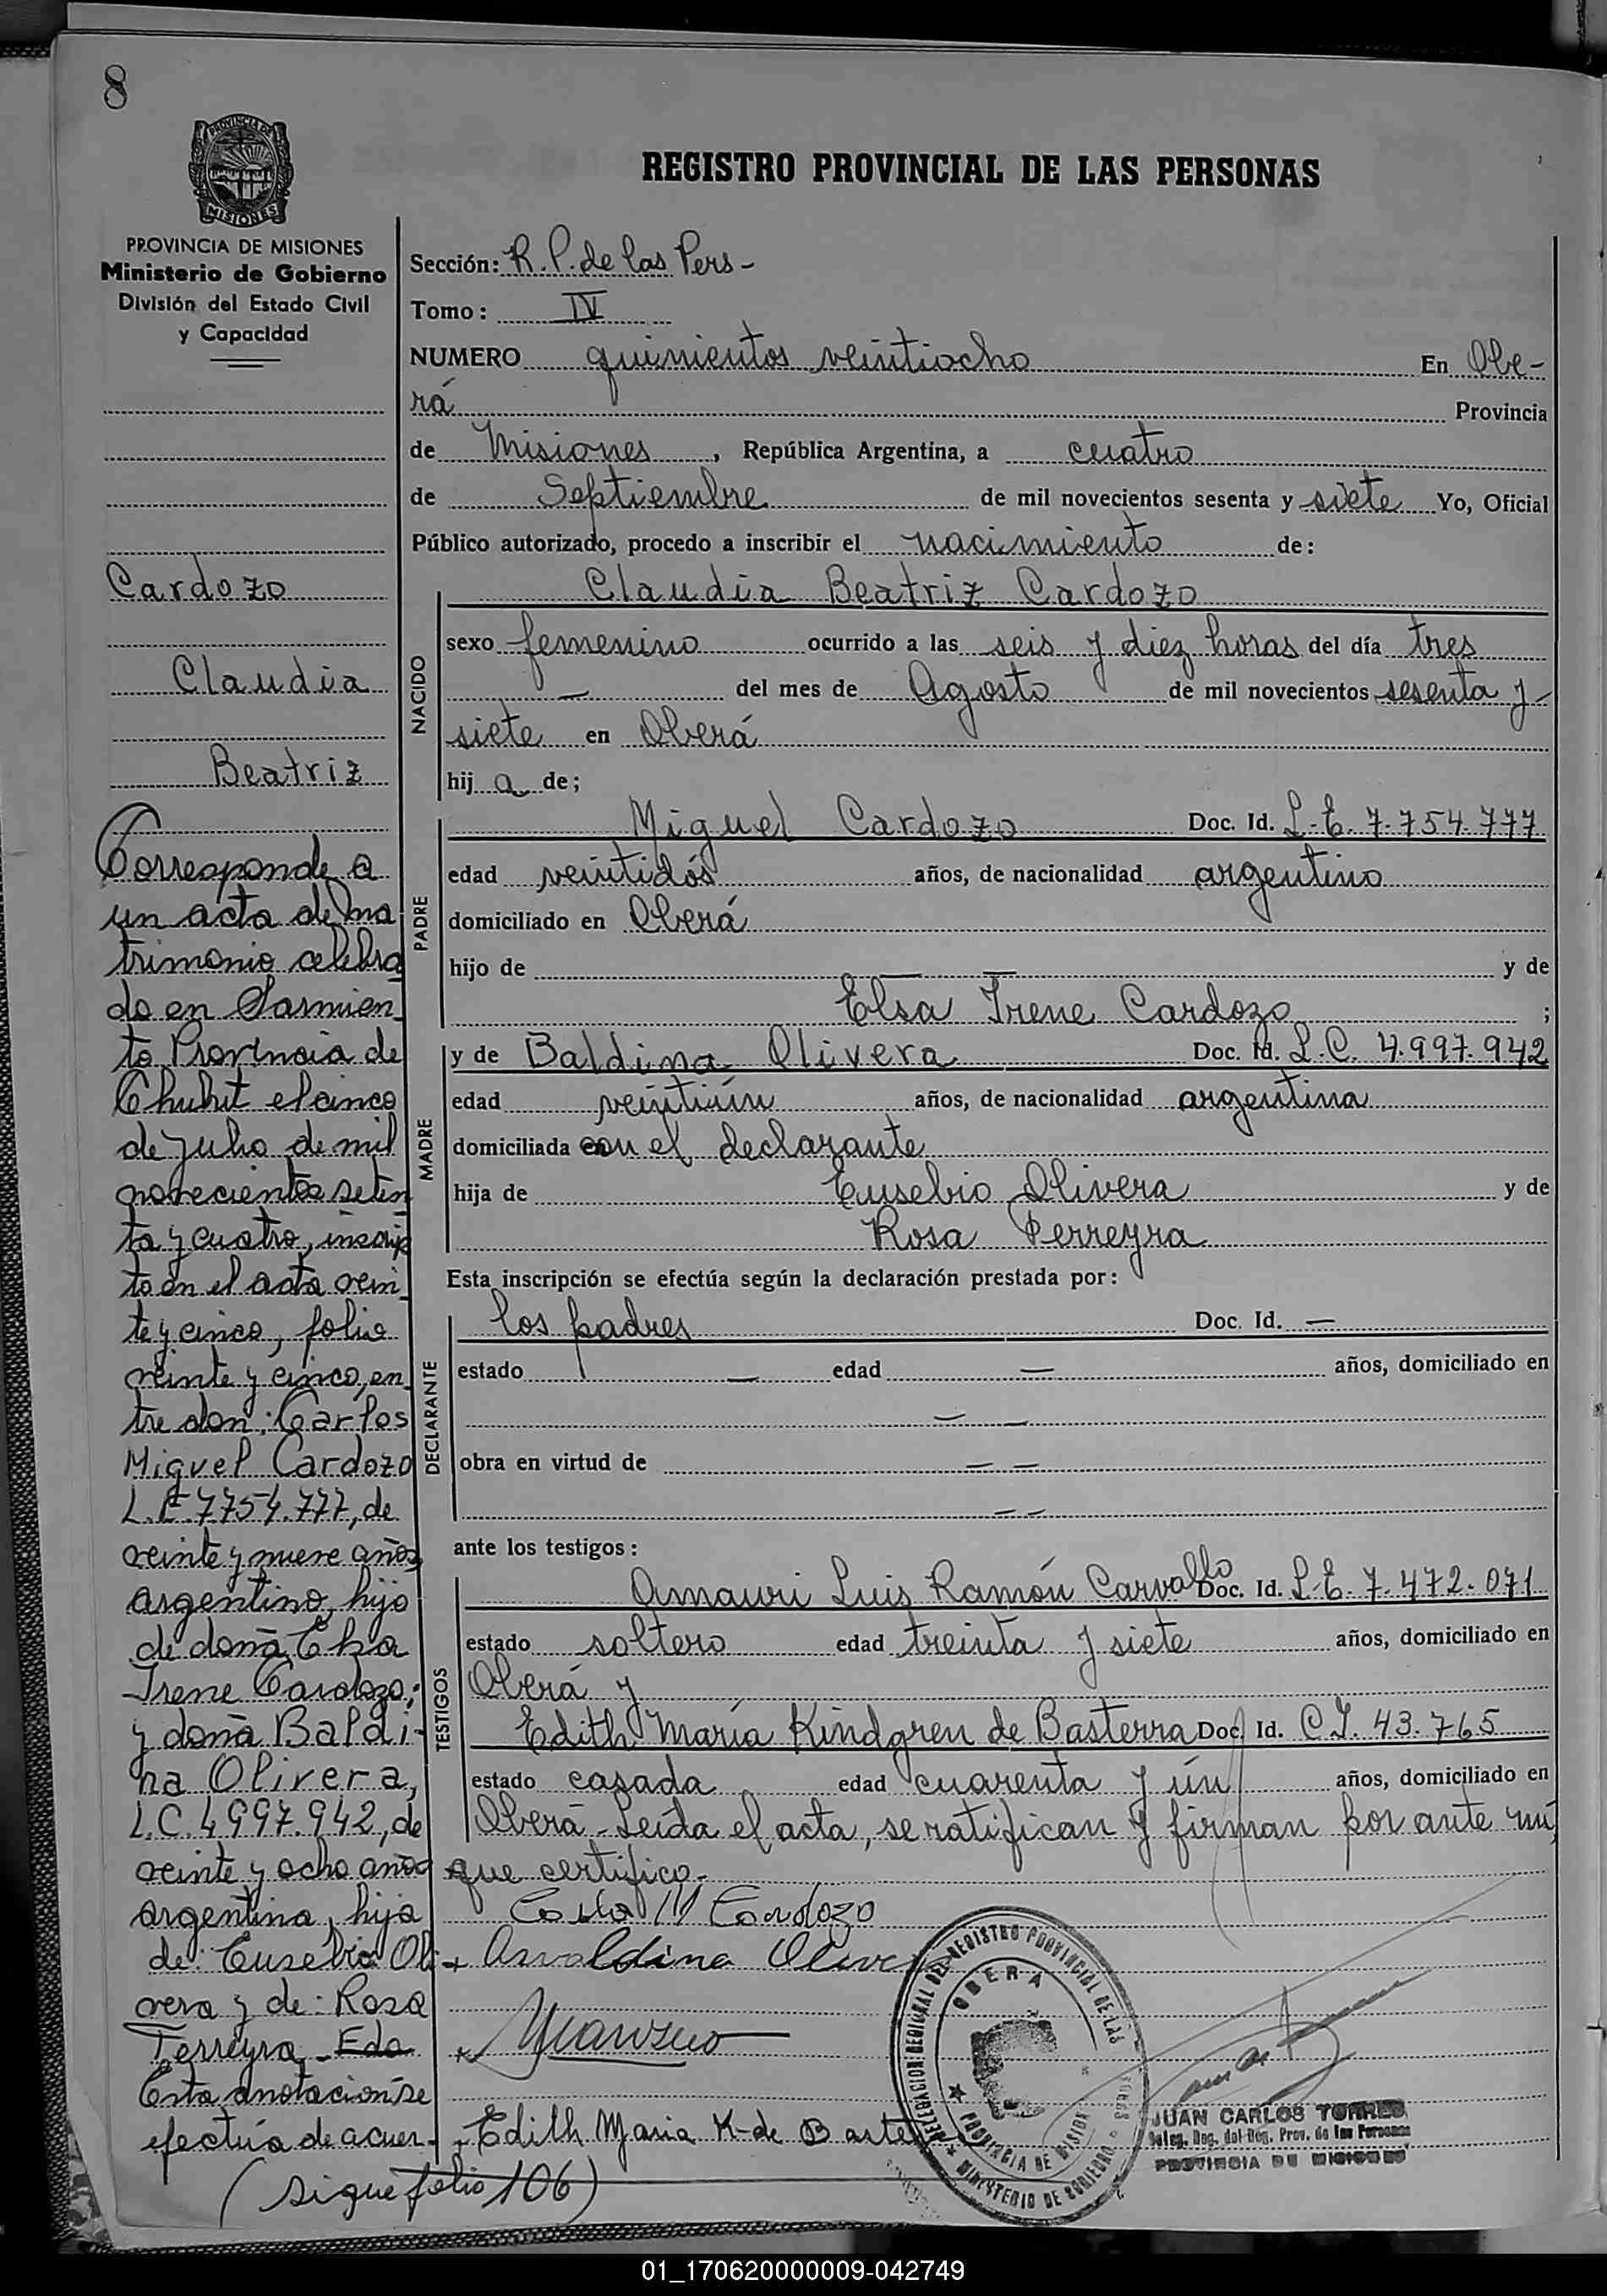 8
PROVINCIA DE
MISIONES
PROVINCIA DE MISIONES
Ministerio de Gobierno
División del Estado Civil
y Capacidad
REGISTRO PROVINCIAL DE LAS PERSONAS
Sección: R. P. de las Pers -
Tomo: IV
NUMERO quinientos veintiocho En Obe-
rá Provincia
de Misiones, República Argentina, a cuatro
de Septiembre de mil novecientos sesenta y siete Yo, Oficial
Público autorizado, procedo a inscribir el nacimiento de:
NACIDO
Claudia Beatriz Cardozo
sexo femenino ocurrido a las seis y diez horas del día tres
— del mes de Agosto de mil novecientos sesenta y-
siete en Oberá
hija de;
PADRE
Miguel Cardozo Doc. Id. L.E. 7.754.777
edad veintidós años, de nacionalidad argentino
domiciliado en Oberá
hijo de — — y de
Elsa Irene Cardozo ;
MADRE
y de Baldina Olivera Doc. Id. L.C. 4.997.942
edad veintiún años, de nacionalidad argentina
domiciliada con el declarante
hija de Eusebio Olivera y de
Rosa Perreyra
Esta inscripción se efectúa según la declaración prestada por:
DECLARANTE
los padres Doc. Id. —
estado — edad — años, domiciliado en
— —
obra en virtud de — —
— —
ante los testigos:
TESTIGOS
Amauri Luis Ramón Carvallo Doc. Id. L.E. 7.472.071
estado soltero edad treinta y siete años, domiciliado en
Oberá y
Edith María Kindgren de Basterra Doc. Id. C.I. 43.765
estado casada edad cuarenta y ún años, domiciliado en
Oberá - Leída el acta, se ratifican y firman por ante mí,
que certifico.-
M Cardozo
Olive
Edith Maria K-de Baste
DELEGACION REGIONAL DEL REGISTRO PROVINCIAL DE LAS
OBERA
PROVINCIA DE MISION
MINISTERIO DE GOBIERNO
JUAN CARLOS TORRES
Deleg. Reg. del Reg. Prov. de las Personas
PROVINCIA DE MISIONES
Cardozo
Claudia
Beatriz
Corresponde a
un acta de ma
trimonio celebra
do en Sarmien
to Provincia de
Chubut el cinco
de Julio de mil
novecientos seten
ta y cuatro, inscrip
to en el acta vein
te y cinco, folio
veinte y cinco, en
tre don: Carlos
Miguel Cardozo
L.E. 7754.777, de
veinte y nueve años
argentino, hijo
de doña Elsa
Irene Cardozo;
y doña Baldi-
na Olivera,
L.C. 4997.942, de
veinte y ocho años
argentina, hija
de: Eusebio Oli
vera y de: Rosa
Ferreyra - Eda
Esta anotación se
efectúa de acuer-
(sigue folio 106)
01_170620000009-042749